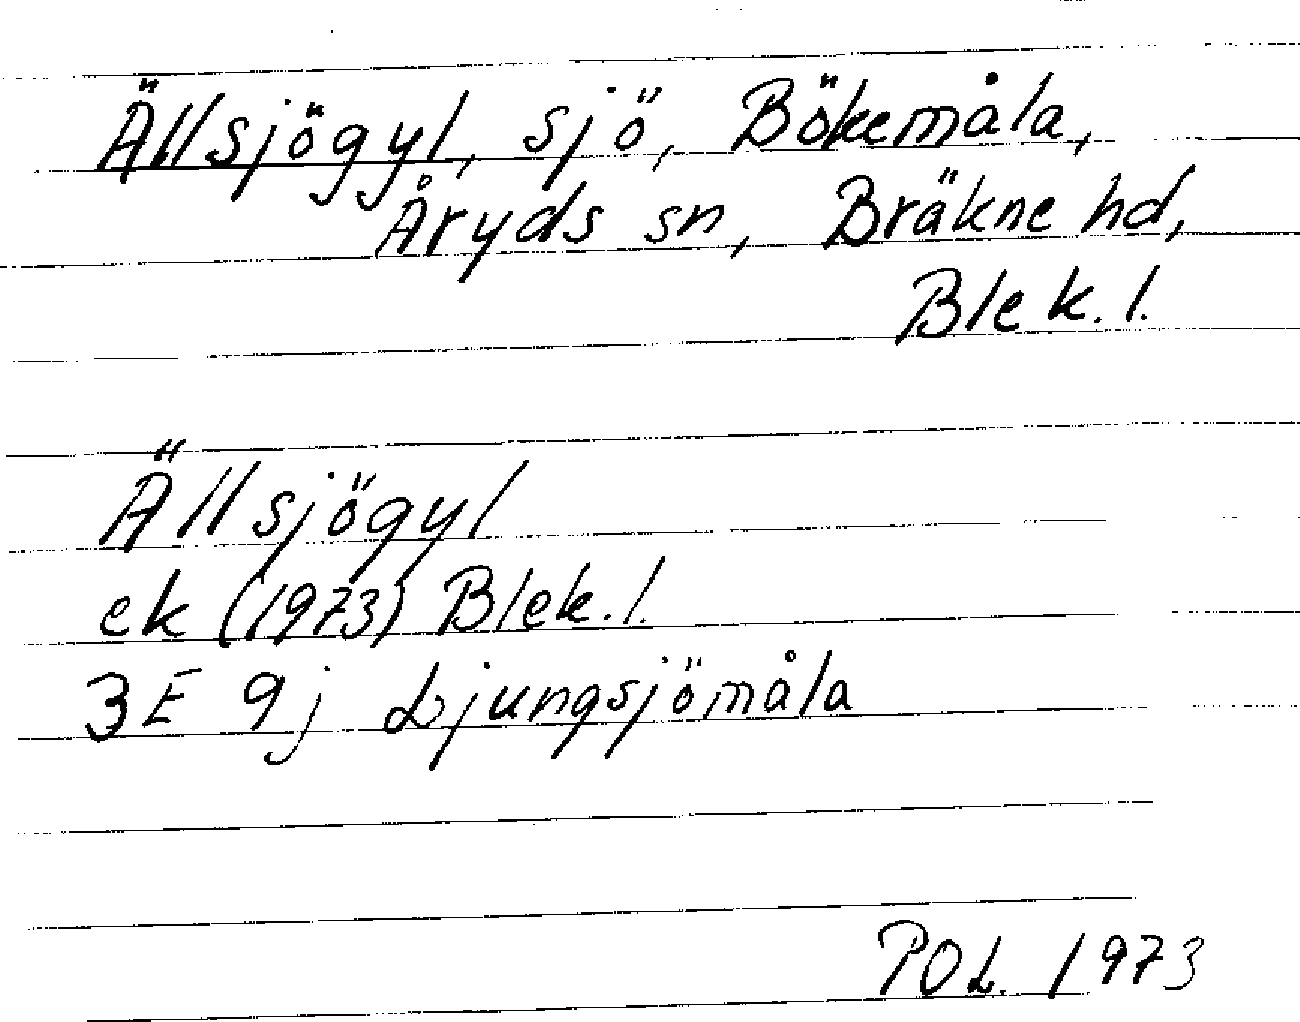 Ällsjögyl, sjö, Bökemåla,
Åryds sn, Bräkne hd,
Blek. l.
Ällsjögyl
ek (1973) Blek. l.
3E 9j Ljungsjömåla
POL. 1973